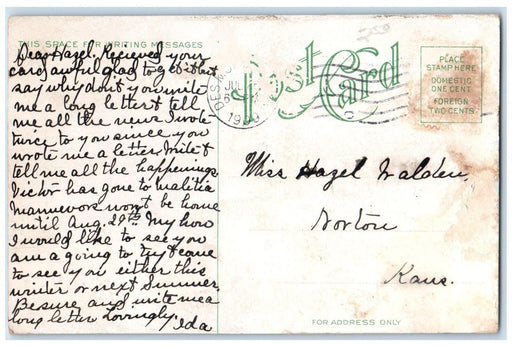 THIS SPACE FOR WRITING MESSAGES
Dear Hazel. Recieved your
card awful glad to get it but
say why dont you write
me a long letter & tell
me all the news I wrote
twice to you since you
wrote me a letter. Write &
tell me all the happenings
Victor has gone to malitia
Manuevors wont be home
until Aug. 29th. My how
I would like to see you
am a going to try & come
to see you either this
winter or next Summer.
Be sure and write me a
long letter Lovingly. Ida
Post Card
DES
PLACE
STAMP HERE
DOMESTIC
ONE CENT
FOREIGN
TWO CENTS
Miss Hazel Walden,
Norton
Kans.
FOR ADDRESS ONLY